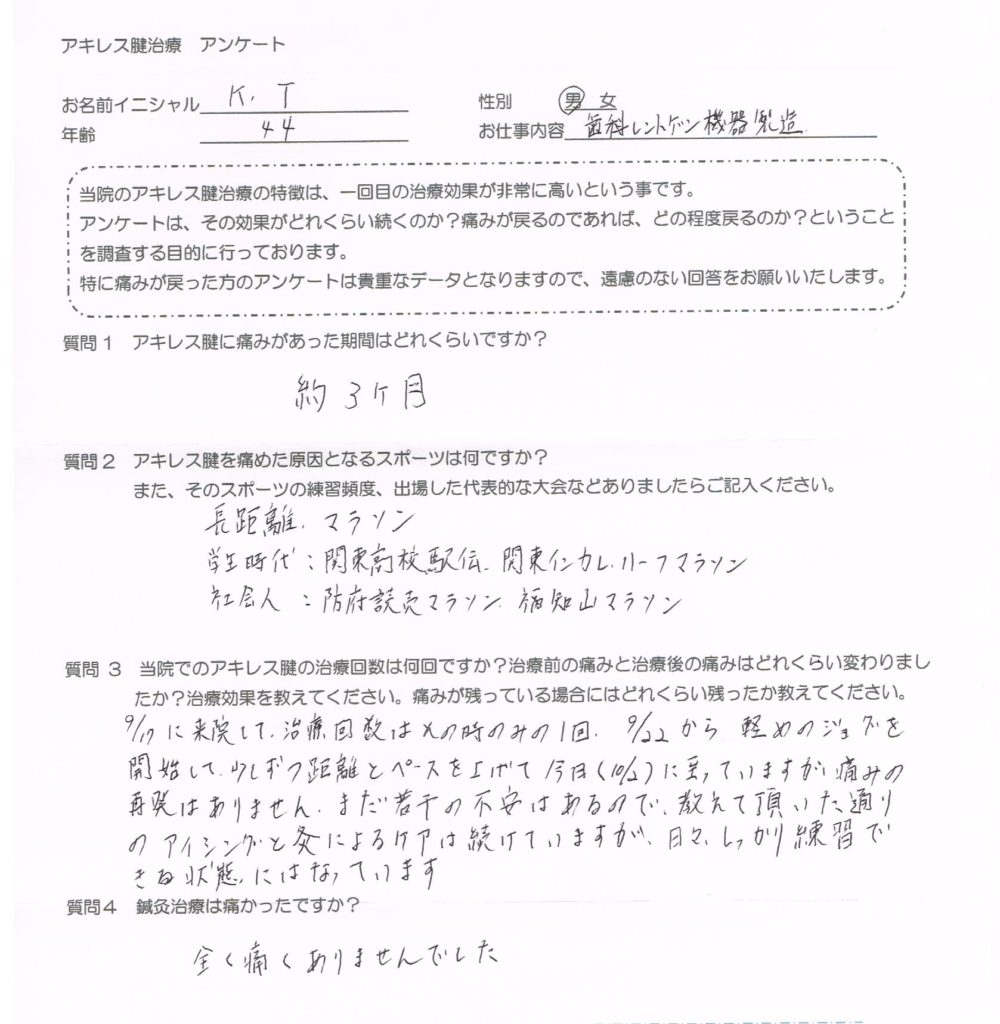 アキレス腱治療 アンケート
お名前イニシャル K. T 性別 男 女
年齢 44 お仕事内容 歯科レントゲン機器製造
当院のアキレス腱治療の特徴は、一回目の治療効果が非常に高いという事です。
アンケートは、その効果がどれくらい続くのか？痛みが戻るのであれば、どの程度戻るのか？ということ
を調査する目的に行っております。
特に痛みが戻った方のアンケートは貴重なデータとなりますので、遠慮のない回答をお願いいたします。
質問1 アキレス腱に痛みがあった期間はどれくらいですか？
約3ケ月
質問2 アキレス腱を痛めた原因となるスポーツは何ですか？
また、そのスポーツの練習頻度、出場した代表的な大会などありましたらご記入ください。
長距離、マラソン
学生時代：関東高校駅伝、関東インカレハーフマラソン
社会人：防府読売マラソン、福知山マラソン
質問 3 当院でのアキレス腱の治療回数は何回ですか？治療前の痛みと治療後の痛みはどれくらい変わりまし
たか？治療効果を教えてください。痛みが残っている場合にはどれくらい残ったか教えてください。
に来院して、治療回数はその時のみの1回、9/22から 軽めのジョグを
開始して、少しずつ距離とペースを上げて今日(10/2)に至っていますが痛みの
再発はありません、まだ若干の不安はあるので、教えて頂いた通り
のアイシングと灸によるケアは続けていますが、日々、しっかり練習で
きる状態にはなっています
質問4 鍼灸治療は痛かったですか？
全く痛くありませんでした